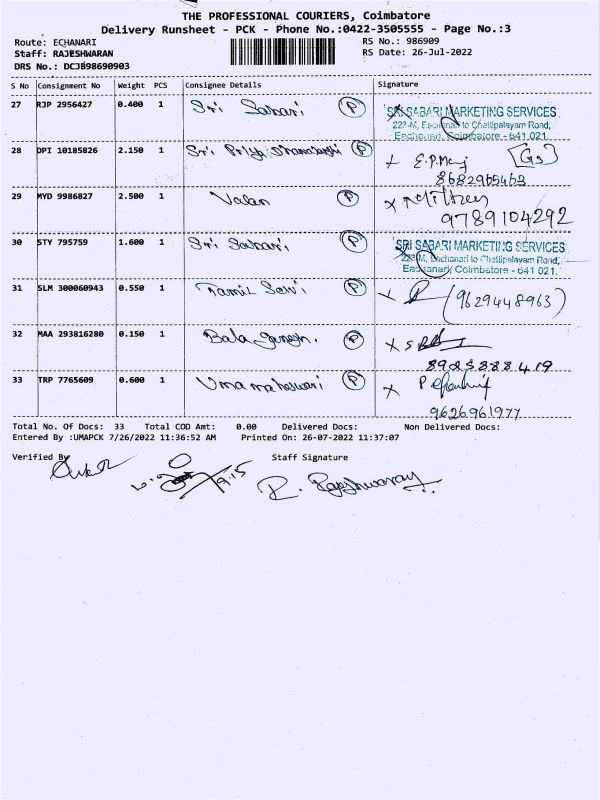 THE PROFESSIONAL COURIERS, Coimbatore
Delivery Runsheet - PCK - Phone No.:0422-3505555 - Page No.:3
Route: ECHANARI RS No.: 986909
Staff: RAJESHWARAN RS Date: 26-Jul-2022
DRS No.: DCJB98690903
S No Consignment No Weight PCS Consignee Details Signature
27 RJP 2956427 0.400 1 Sri Sabari P
SRI SABARI MARKETING SERVICES
Road,
Coimbatore - 641 021
28 DPI 10185826 2.150 1 Sri Priya P
8682965463
29 MYD 9986827 2.500 1 Valan P
9789104292
30 STY 795759 1.600 1 Sri Sabari, P
SRI SABARI MARKETING SERVICES
Road,
Coimbatore - 641 021.
31 SLM 300060943 0.550 1 Tamil Selvi P (9629448963)
32 MAA 293816280 0.150 1 Bala ganesh. P
8925388419
33 TRP 7765609 0.600 1 Uma maheswari P
9626961977
Total No. Of Docs: 33 Total COD Amt: 0.00 Delivered Docs: Non Delivered Docs:
Entered By :UMAPCK 7/26/2022 11:36:52 AM Printed On: 26-07-2022 11:37:07
Verified By Staff Signature
9.15
R. Rajeshwaran